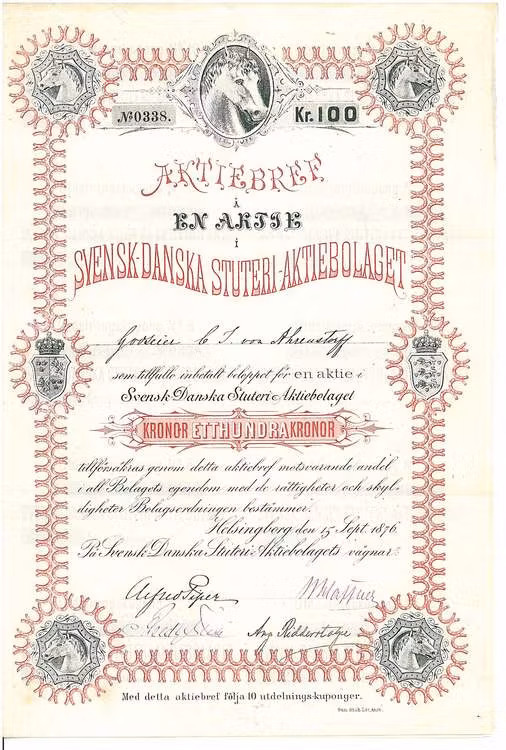 № 0338.
Kr. 100
AKTIEBREF
Å
EN AKTIE
i
SVENSK-DANSKA STUTERI-AKTIEBOLAGET
C F von Ahrenstorff
som tillfullo inbetalt beloppet för en aktie i
Svensk-Danska Stuteri-Aktiebolaget
KRONOR ETTHUNDRA KRONOR
tillförsäkras genom detta aktiebref motsvarande andel
i all Bolagets egendom med de rättigheter och skyl-
digheter Bolagsordningen bestämmer.
Helsingborg den 15 Sept. 1876.
På Svensk-Danska Stuteri-Aktiebolagets vägnar:
Alfred Piper
Aug Ridderstolpe
Med detta aktiebref följa 10 utdelnings-kuponger.